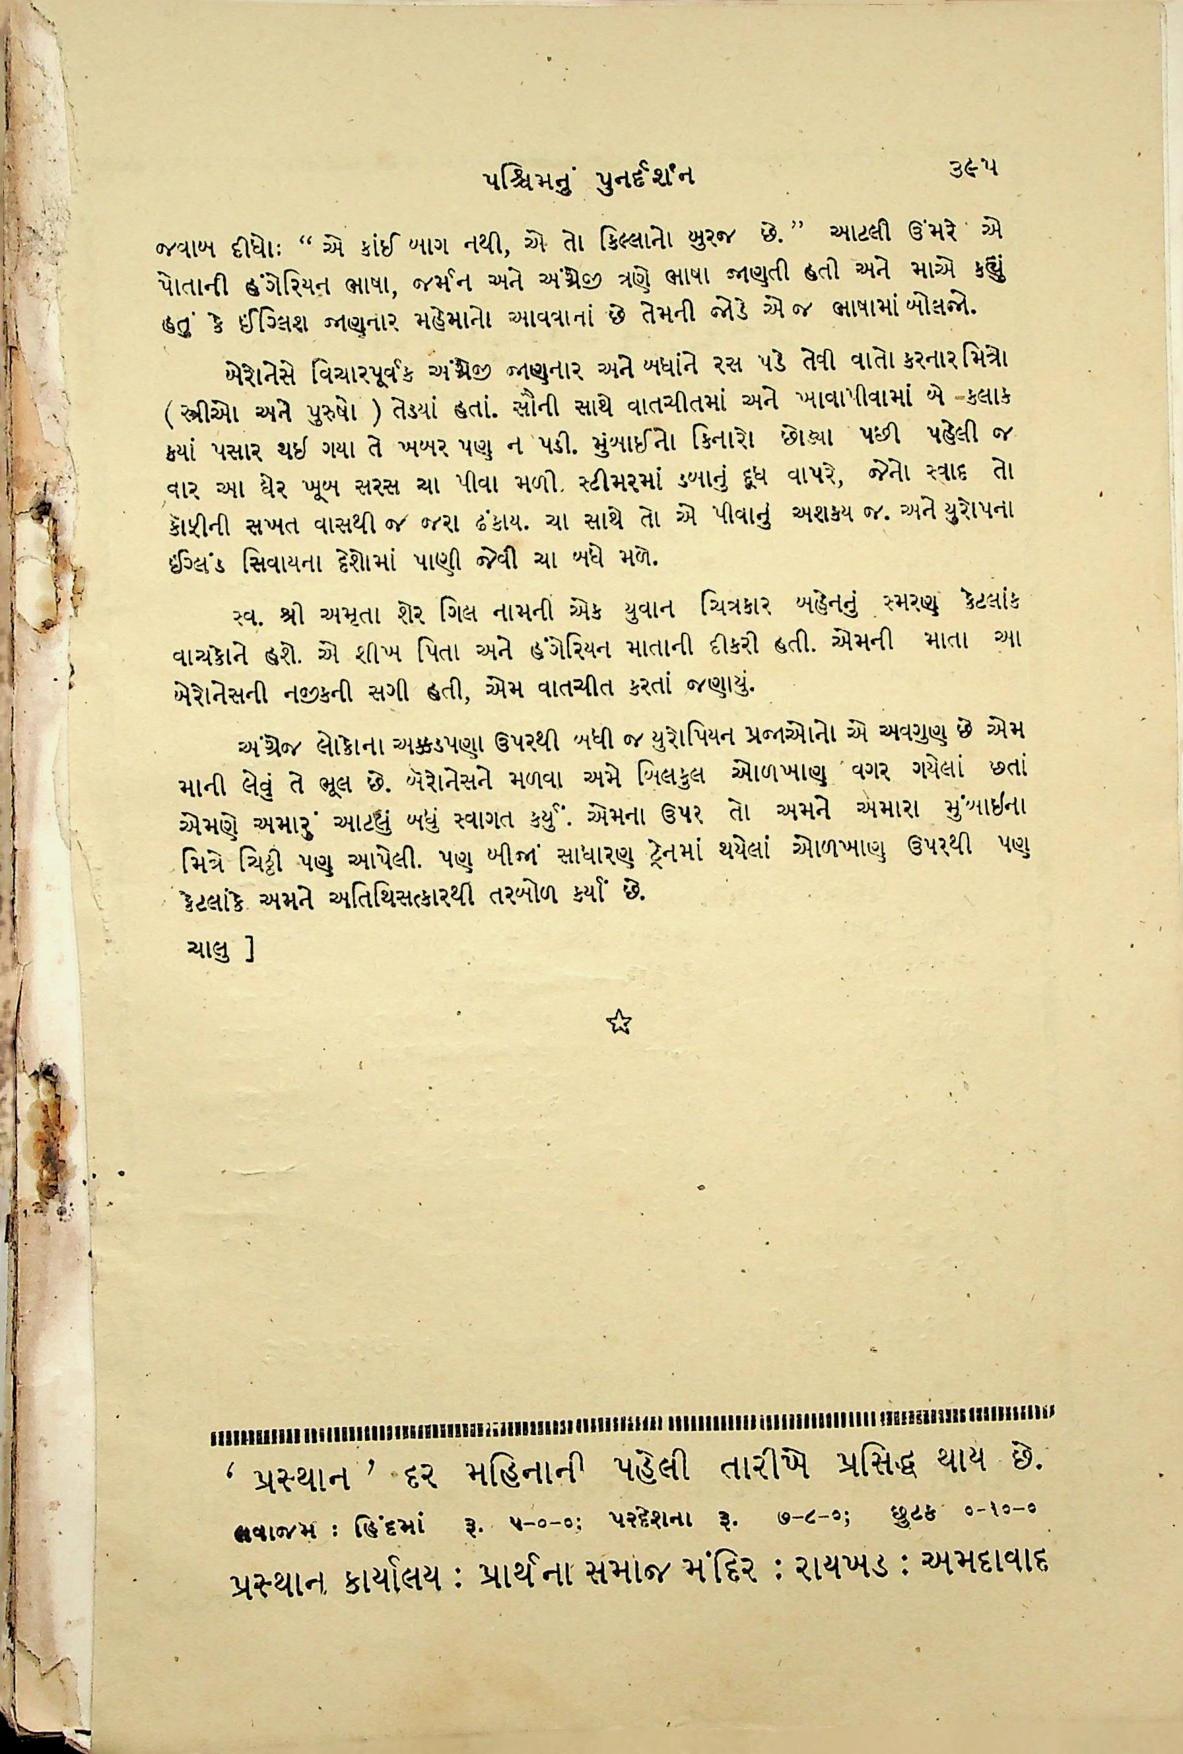 પશ્ચિમનું પુનર્દર્શન ૩૯૫
જવાબ દીધોઃ “ એ કાંઈ બાગ નથી, એ તો કિલ્લાનો બુરજ છે.” આટલી ઉંમરે એ
પોતાની હંગેરિયન ભાષા, જર્મન અને અંગ્રેજી ત્રણે ભાષા જાણતી હતી અને માએ કહ્યું
હતું કે ઈંગ્લિશ જાણનાર મહેમાનો આવવાનાં છે તેમની જોડે એ જ ભાષામાં બોલજો.
બેરોનેસે વિચારપૂર્વક અંગ્રેજી જાણનાર અને બધાંને રસ પડે તેવી વાતો કરનાર મિત્રો
( સ્ત્રીઓ અને પુરુષો ) તેડ્યાં હતાં. સૌની સાથે વાતચીતમાં અને ખાવાપીવામાં બે કલાક
ક્યાં પસાર થઈ ગયા તે ખબર પણ ન પડી. મુંબાઈનો કિનારો છોડ્યા પછી પહેલી જ
વાર આ ઘેર ખૂબ સરસ ચા પીવા મળી. સ્ટીમરમાં ડબાનું દૂધ વાપરે, જેનો સ્વાદ તો
કોફીની સખત વાસથી જ જરા ઢંકાય. ચા સાથે તો એ પીવાનું અશક્ય જ. અને યુરોપના
ઇંગ્લિંડ સિવાયના દેશોમાં પાણી જેવી ચા બધે મળે.
સ્વ. શ્રી અમૃતા શેર ગિલ નામની એક યુવાન ચિત્રકાર બહેનનું સ્મરણ કેટલાંક
વાચકોને હશે. એ શીખ પિતા અને હંગેરિયન માતાની દીકરી હતી. એમની માતા આ
બેરોનેસની નજીકની સગી હતી, એમ વાતચીત કરતાં જણાયું.
અંગ્રેજ લોકોના અક્કડપણા ઉપરથી બધી જ યુરોપિયન પ્રજાઓનો એ અવગુણ છે એમ
માની લેવું તે ભૂલ છે. બેરોનેસને મળવા અમે બિલકુલ ઓળખાણ વગર ગયેલાં છતાં
એમણે અમારું આટલું બધું સ્વાગત કર્યું. એમના ઉપર તો અમને અમારા મુંબાઇના
મિત્રે ચિઠ્ઠી પણ આપેલી. પણ બીજાં સાધારણ ટ્રેનમાં થયેલાં ઓળખાણ ઉપરથી પણ
કેટલાંકે અમને અતિથિસત્કારથી તરબોળ કર્યાં છે.
ચાલુ ]
‘ પ્રસ્થાન ’ દર મહિનાની પહેલી તારીખે પ્રસિદ્ધ થાય છે.
લવાજમ : હિંદમાં રૂ. ૫-૦-૦; પરદેશના રૂ. ૭-૮-૦; છુટક ૦-૧૦-૦
પ્રસ્થાન કાર્યાલય : પ્રાર્થના સમાજ મંદિર : રાયખડ : અમદાવાદ